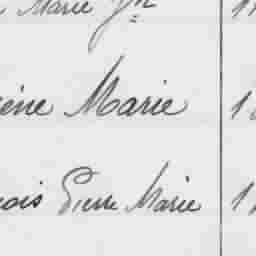 Marie Jn
ène Marie
ois Pierre Marie